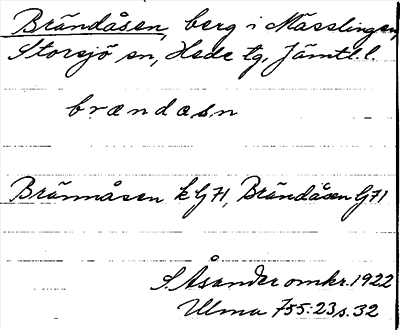 Brändåsen, berg i Mässlingen,
Storsjö sn, Hede tg, Jämtl. l.
brændæsn
Brännåsen k G71, Brändåsen G71
S. Åsander omkr. 1922
Ulma 755:23 s. 32